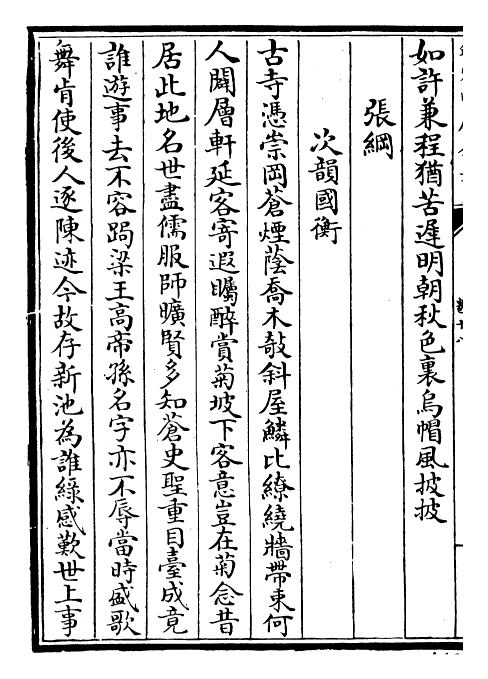 如許兼程猶苦遲明朝秋色裏烏帽風披披
張綱
次韻國衡
古寺憑崇岡蒼煙蔭喬木敧斜屋鱗比繚繞牆帶東何
人闢層軒延客寄遐矚醉賞菊坡下客意豈在菊念昔
居此地名世盡儒服師曠賢多知蒼史聖重目臺成竟
誰遊事去不容跼梁王高帝孫名字亦不辱當時盛歌
舞肯使後人逐陳迹今故存新池為誰綠感歎世上事